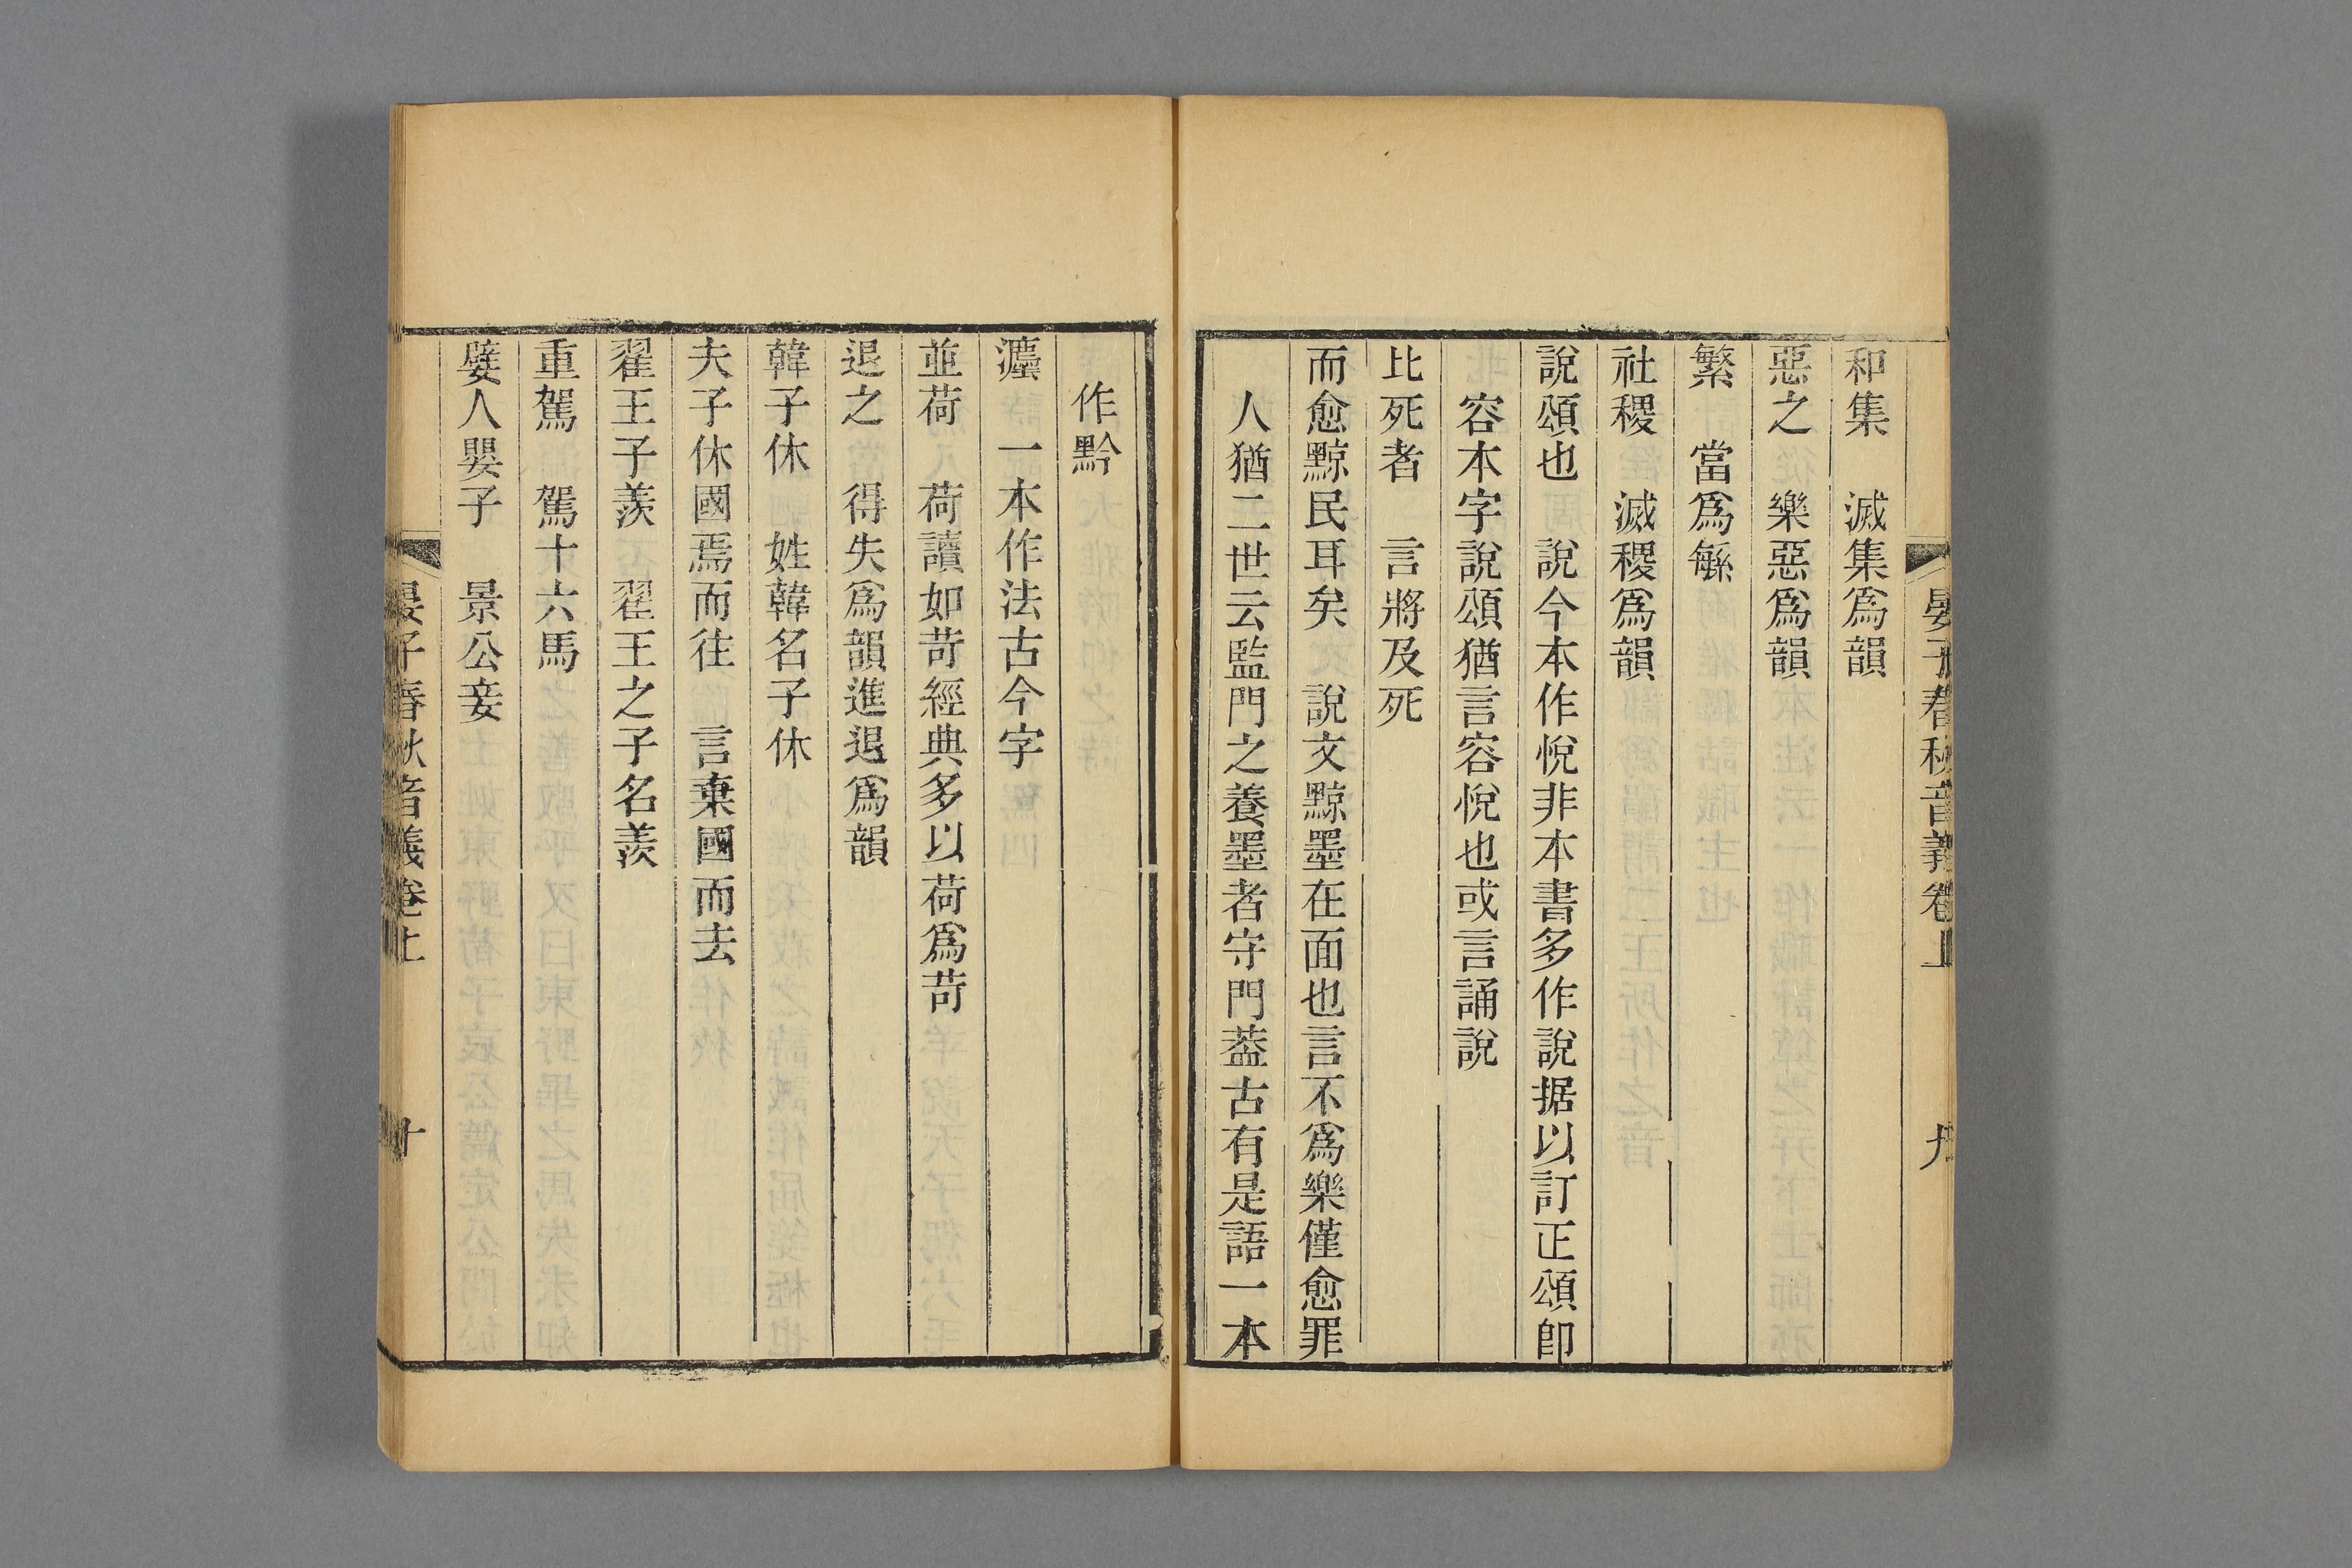 晏子春秋音義卷上 九
和集 滅集爲韻
惡之 樂惡爲韻
繁 當爲緐
社稷 滅稷爲韻
說頌也 說今本作悅非本書多作說据以訂正頌卽
容本字說頌猶言容悅也或言誦說
比死者 言將及死
而愈黥民耳矣 說文黥墨在面也言不爲樂僅愈罪
人猶二世云監門之養墨者守門葢古有是語一本
作黔
灋 一本作法古今字
並荷 荷讀如苛經典多以荷爲苛
退之 得失爲韻進退爲韻
韓子休 姓韓名子休
夫子休國焉而往 言棄國而去
翟王子羨 翟王之子名羨
重駕 駕十六馬
嬖人嬰子 景公妾
晏子春秋音義卷上 十